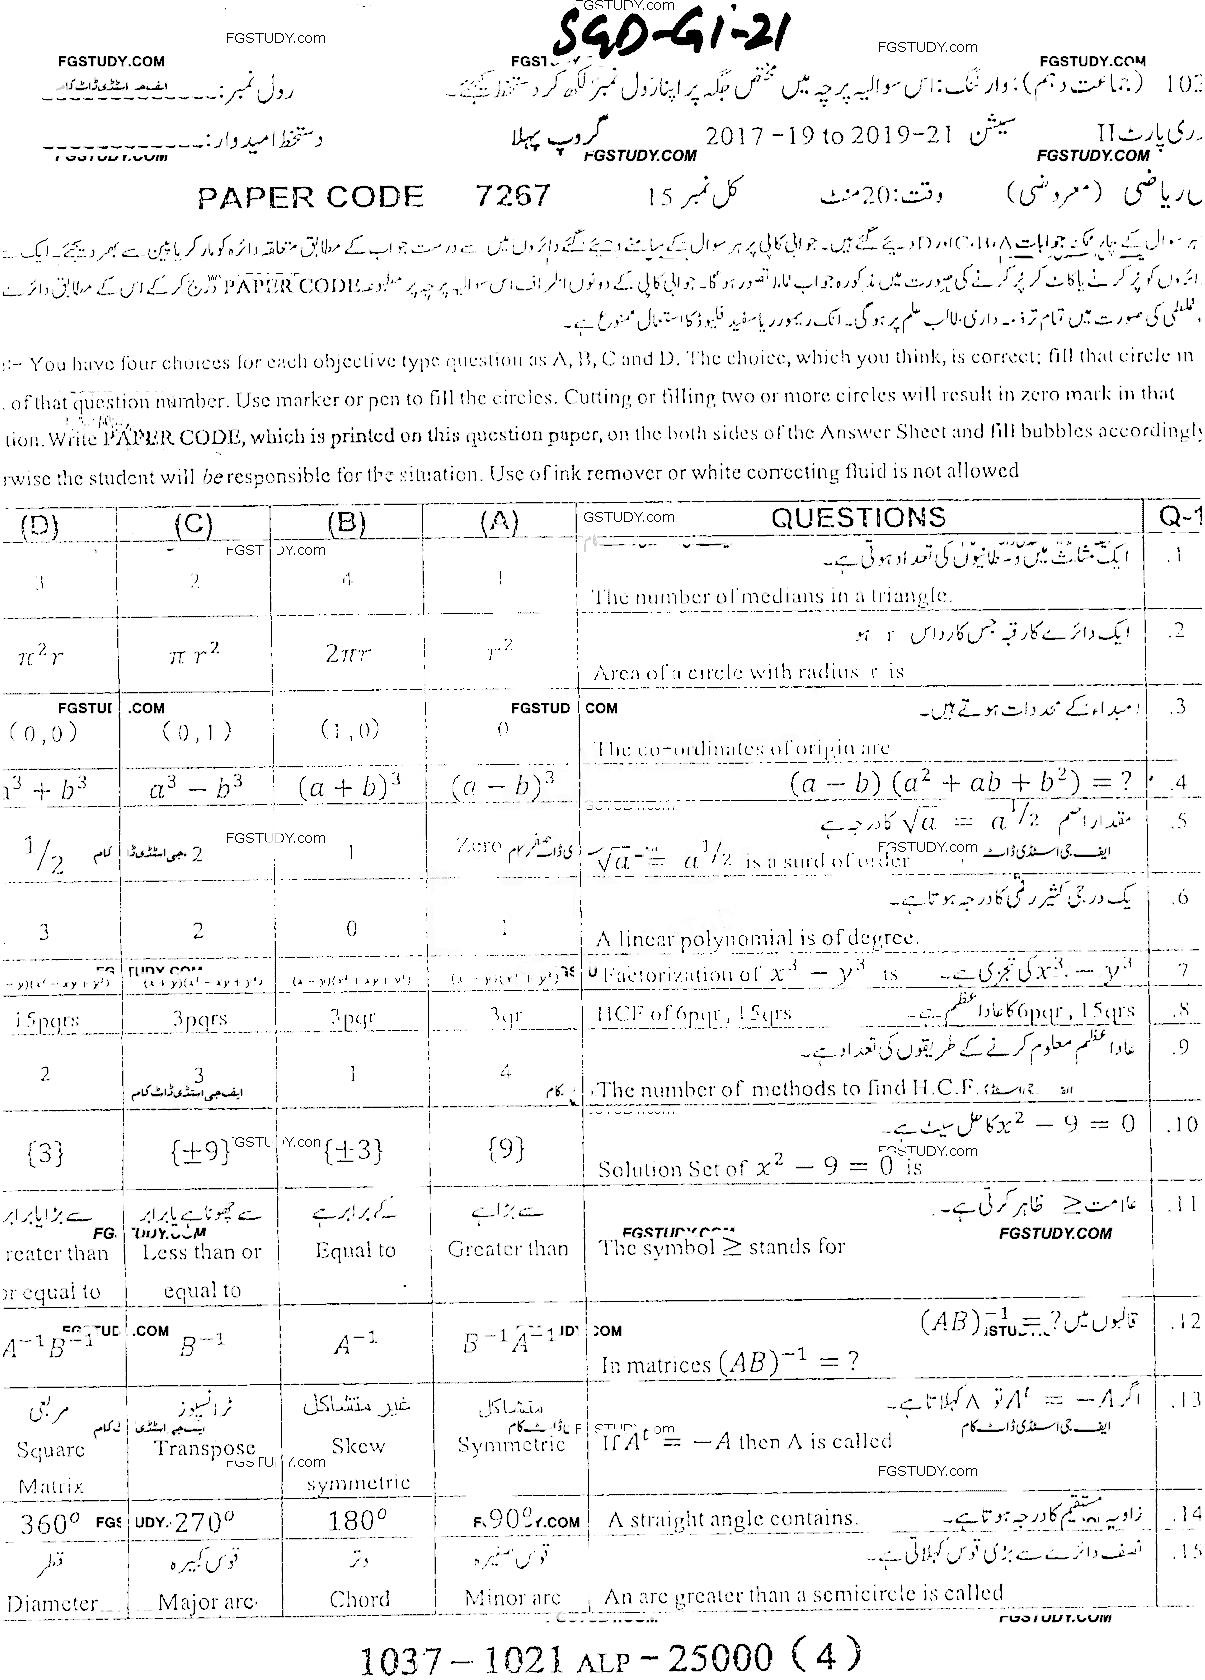 FGSTUDY.com
SGD-G1-21
FGSTUDY.com
FGSTUDY.com
FGSTUDY.COM
FGSTUDY.COM
(جماعت دہم): وارننگ: اس سوالیہ پرچہ میں مختص جگہ پر اپنا رول نمبر لکھ کر دستخط کیجئے۔ رول نمبر:
ایف جی اسٹڈی ڈاٹ کام
پارٹ II سیشن 2017-19 to 2019-21 گروپ پہلا دستخط امیدوار:
FGSTUDY.COM
FGSTUDY.COM
FGSTUDY.COM
ریاضی (معروضی) وقت: 20 منٹ کل نمبر 15 PAPER CODE 7267
ہر سوال کے چار ممکنہ جوابات A، B، C اور D دیئے گئے ہیں۔ جوابی کاپی پر ہر سوال کے سامنے دیئے گئے دائروں میں سے درست جواب کے مطابق متعلقہ دائرہ کو مارکر یا پین سے بھر دیجئے۔ ایک سے
دائروں کو پر کرنے یا کاٹ کر پر کرنے کی صورت میں مذکورہ جواب غلط تصور ہوگا۔ جوابی کاپی کے دونوں اطراف اس سوالیہ پرچہ پر مطبوعہ PAPER CODE درج کر کے اس کے مطابق دائرے
غلطی کی صورت میں تمام تر ذمہ داری طالب علم پر ہوگی۔ انک ریموور یا سفید فلیوڈ کا استعمال ممنوع ہے۔
:- You have four choices for each objective type question as A, B, C and D. The choice, which you think, is correct; fill that circle in
of that question number. Use marker or pen to fill the circles. Cutting or filling two or more circles will result in zero mark in that
tion. Write PAPER CODE, which is printed on this question paper, on the both sides of the Answer Sheet and fill bubbles accordingly
rwise the student will be responsible for the situation. Use of ink remover or white correcting fluid is not allowed
(D) (C) (B) (A) QUESTIONS Q-1
ایک مثلث میں وسطانیوں کی تعداد ہوتی ہے۔ .1
3 2 4 1 The number of medians in a triangle.
ایک دائرے کا رقبہ جس کا رداس r ہو .2
π²r πr² 2πr r² Area of a circle with radius r is
مبداء کے محددات ہوتے ہیں۔ .3
(0,0) (0,1) (1,0) 0 The co-ordinates of origin are
a³ + b³ a³ − b³ (a + b)³ (a − b)³ (a − b) (a² + ab + b²) = ? .4
مقدار اصم √a = a^1/2 کا درجہ ہے .5
1/2 2 1 Zero صفر √a = a^1/2 is a surd of order
یک درجی کثیر رقمی کا درجہ ہوتا ہے۔ .6
3 2 0 1 A linear polynomial is of degree.
Factorization of x³ − y³ is x³ − y³ کی تجزی ہے۔ 7
15pqrs 3pqrs 3pqr 3qr HCF of 6pqr, 15qrs 6pqr, 15qrs کا عاد اعظم ہے۔ .8
عاد اعظم معلوم کرنے کے طریقوں کی تعداد ہے۔ .9
2 3 1 4 The number of methods to find H.C.F.
x² − 9 = 0 کا حل سیٹ ہے۔ .10
{3} {±9} {±3} {9} Solution Set of x² − 9 = 0 is
علامت ≥ ظاہر کرتی ہے۔ .11
سے بڑا یا برابر سے چھوٹا ہے یا برابر کے برابر ہے سے بڑا ہے
reater than Less than or Equal to Greater than The symbol ≥ stands for
or equal to equal to
قالبوں میں ? = (AB)⁻¹ .12
A⁻¹B⁻¹ B⁻¹ A⁻¹ B⁻¹A⁻¹ In matrices (AB)⁻¹ = ?
اگر Aᵗ = −A تو A کہلاتا ہے۔ .13
مربعی ٹرانسپوز غیر متشاکل متشاکل
Square Transpose Skew Symmetric If Aᵗ = −A then A is called
Matrix symmetric
FGSTUDY.com
360° 270° 180° 90° A straight angle contains. زاویہ مستقیم کا درجہ ہوتا ہے۔ .14
نصف دائرے سے بڑی قوس کہلاتی ہے۔ .15
قطر قوس کبیرہ وتر قوس صغیرہ
Diameter Major arc Chord Minor arc An arc greater than a semicircle is called
FGSTUDY.COM
1037 – 1021 ALP – 25000 (4)